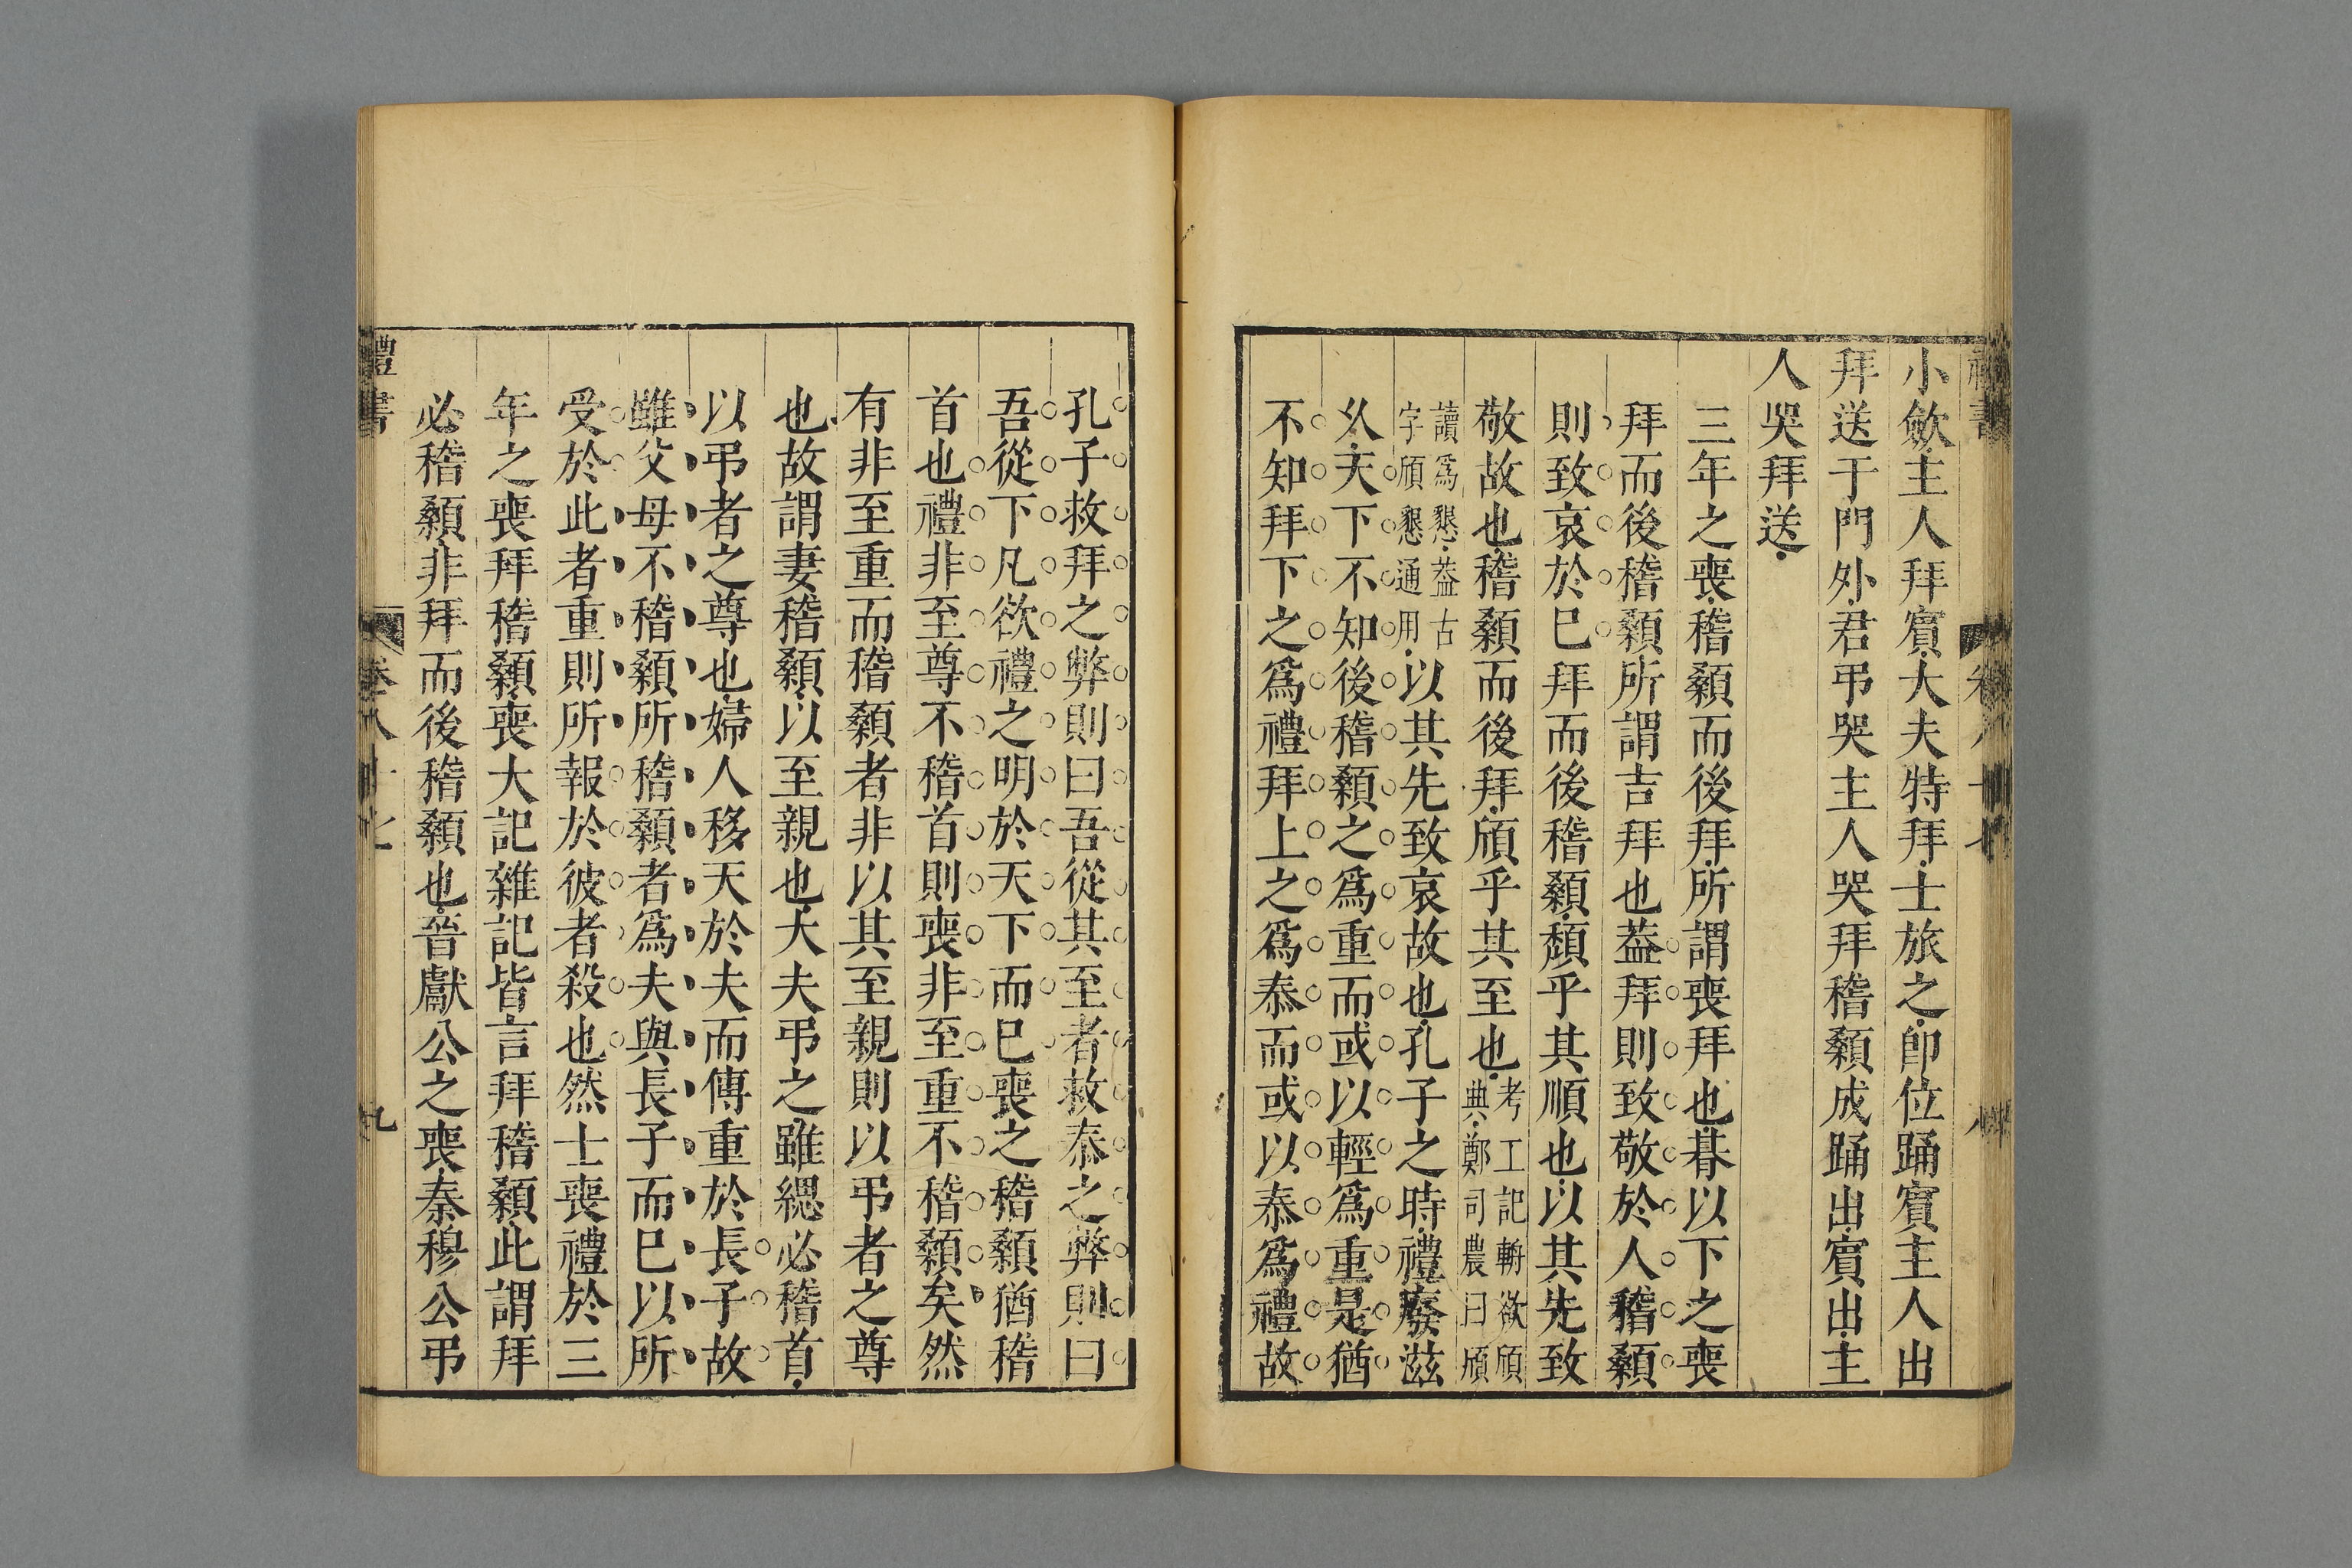 小歛主人拜賔大夫特拜士旅之卽位踊賔主人出
拜送于門外君弔哭主人哭拜稽顙成踊出賔出主
人哭拜送
三年之喪稽顙而後拜所謂喪拜也朞以下之喪
拜而後稽顙所謂吉拜也葢拜則致敬於人稽顙
則致哀於巳拜而後稽顙頹乎其順也以其先致
敬故也稽顙而後拜頎乎其至也考工記輈欲頎典鄭司農曰頎
讀爲懇葢古字頎懇通用以其先致哀故也孔子之時禮廢滋
乆天下不知後稽顙之爲重而或以輕爲重是猶
不知拜下之爲禮拜上之爲泰而或以泰爲禮故
孔子救拜之弊則曰吾從其至者救泰之弊則曰
吾從下凡欲禮之明於天下而巳喪之稽顙猶稽
首也禮非至尊不稽首則喪非至重不稽顙矣然
有非至重而稽顙者非以其至親則以弔者之尊
也故謂妻稽顙以至親也大夫弔之雖緦必稽首
以弔者之尊也婦人移天於夫而傳重於長子故
雖父母不稽顙所稽顙者爲夫與長子而巳以所
受於此者重則所報於彼者殺也然士喪禮於三
年之喪拜稽顙喪大記雜記皆言拜稽顙此謂拜
必稽顙非拜而後稽顙也晉獻公之喪秦穆公弔
禮書
卷八十七
九